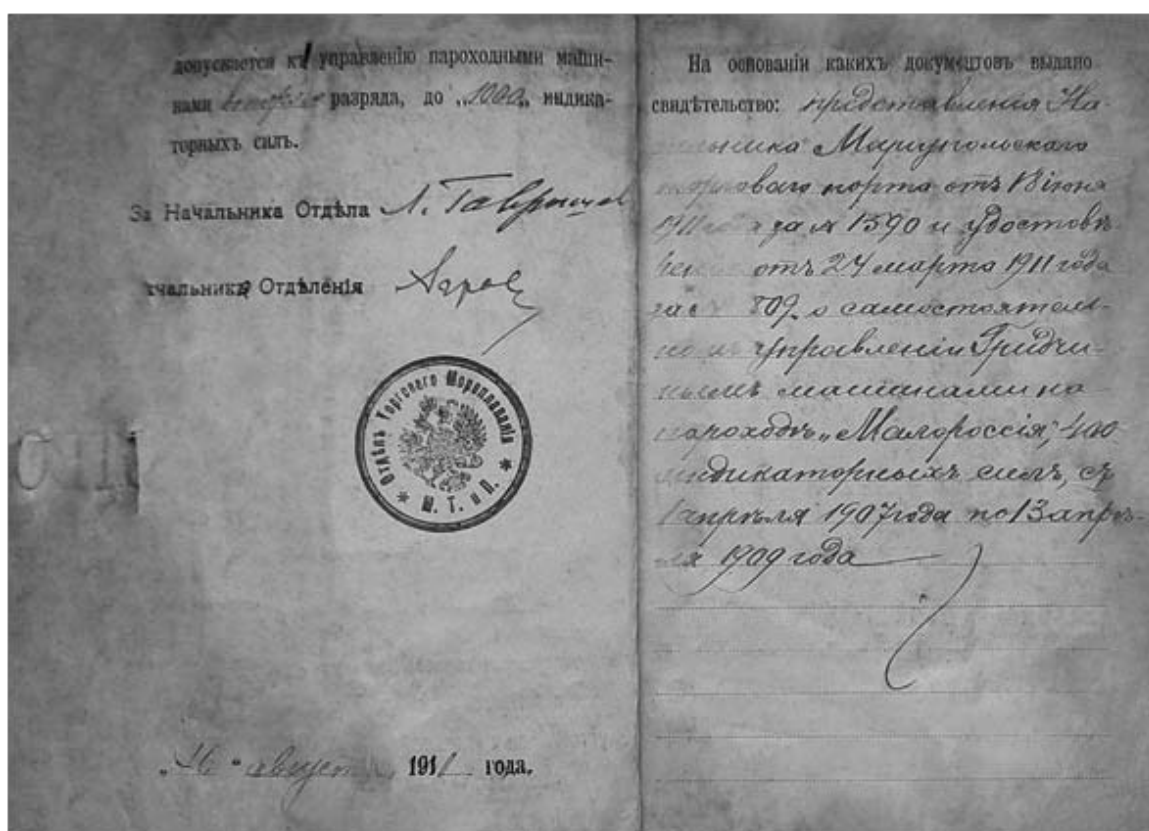 допускается къ управленію пароходными маши-
нами второго разряда, до „1000„ индика-
торныхъ силъ.
За Начальника Отдѣла Л. Гаврышев
чальника Отдѣленія
Отдѣлъ Торговаго Мореплаванія
М. Т. и П.
„16 " август 1911 года.
На основаніи какихъ документовъ выдано
свидѣтельство: представленія На-
чальника Маріупольскаго
торговаго порта отъ 18 іюня
1911 года за № 1590 и удостовѣ-
отъ 24 марта 1911 года
за 809, о самостоятель-
управленіи Гридчи-
нымъ машинами на
пароходѣ „Малороссія", 400
индикаторныхъ силъ, съ
1 апрѣля 1907 года по 13 апрѣ-
ля 1909 года